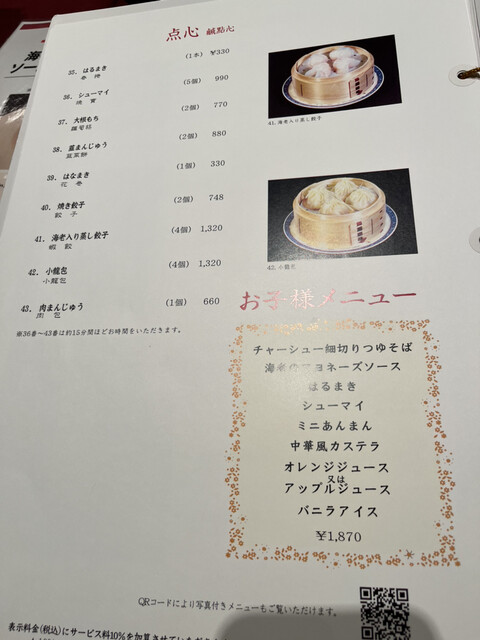 海
ソー
点心 鹹點心
35、はるまき (1本) ¥330
春捲
36、シューマイ (5個) 990
焼賣
37、大根もち (2個) 770
蘿蔔糕
38、韮まんじゅう (2個) 880
韮菜餅
39、はなまき (1個) 330
花巻
40、焼き餃子 (2個) 748
餃子
41、海老入り蒸し餃子 (4個) 1,320
蝦餃
42、小籠包 (4個) 1,320
小籠包
43、肉まんじゅう (1個) 660
肉包
※36番〜43番は約15分間ほどお時間をいただきます。
41. 海老入り蒸し餃子
42. 小籠包
お子様メニュー
チャーシュー細切りつゆそば
海老のマヨネーズソース
はるまき
シューマイ
ミニあんまん
中華風カステラ
オレンジジュース
又は
アップルジュース
バニラアイス
¥1,870
QRコードにより写真付きメニューもご覧いただけます。
表示料金(税込)にサービス料10%を加算させていただ